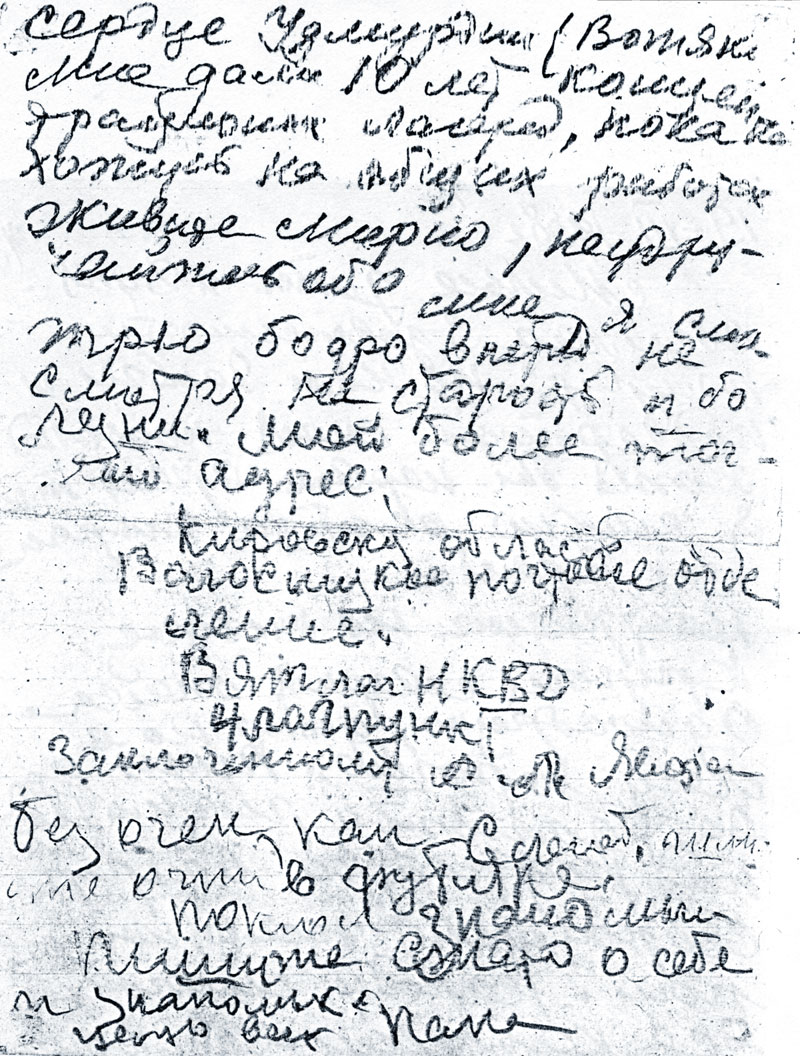 сердце Удмурдии (Вотяки
мне дали 10 лет концен
трационных лагерей, пока на
хожусь на общих работах
живите мирно, не удру-
чайтесь обо мне, я смо-
трю бодро вперед не
смотря на старость и бо
лезни. мой более точ-
ный адрес:
Кировску область
Волосницкое почтовое отде
ление.
Вятлаг НКВД
4 лагпункт
Заключенному
без очень как слепой, 
очки в футляре.
поклон знакомым
пишите о себе
и знакомых.
целую всех Папа